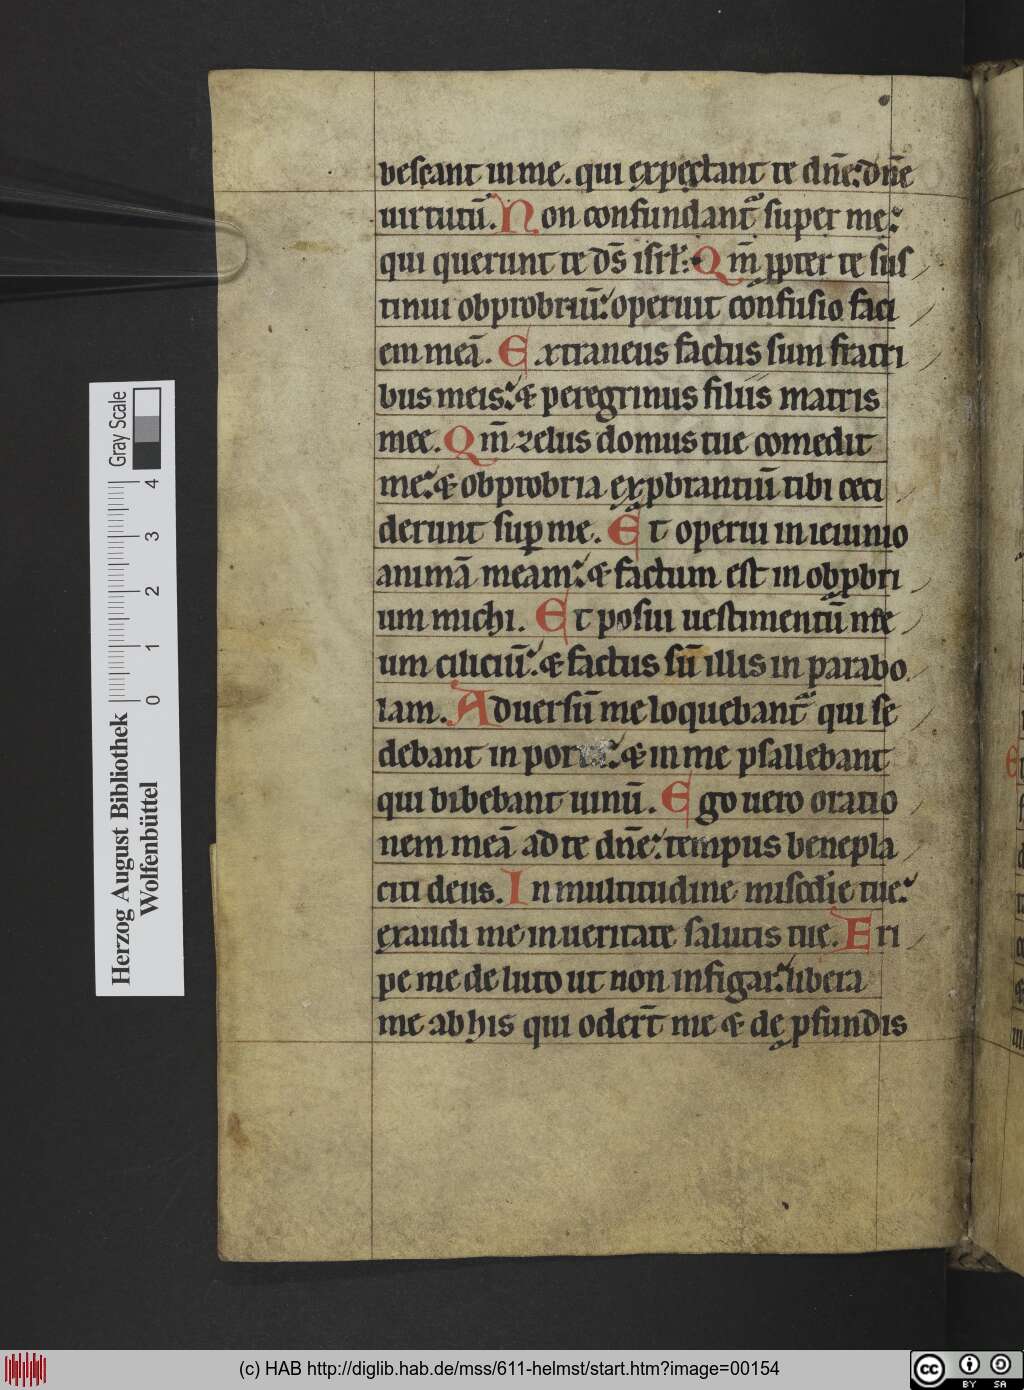 besçant in me. qui exꝑectant te dn̄e: dn̄e
uirtutū. Non confundant᷑ super me:
qui querunt te ds̄ isrl̄: Qm̄ ꝓpter te sus
tinui obprobriū: operuit confusio faci
em meā. Extraneus factus sum fratri
bus meis: & peregrinus filiis matris
mee. Qm̄ zelus domus tue comedit
me: & obprobria exꝓbrantiū tibi ceci
derunt suꝑ me. Et operui in ieiunio
animā meam: & factum est in obꝓbri
um michi. Et posui uestimentū me
um ciliciū: & factus sū illis in parabo
lam. Aduersū me loquebant᷑ qui se
debant in por : & in me psallebant
qui bibebant uinū. Ego uero oratio
nem meā ad te dn̄e: tempus benepla
citi deus. In multitudine misc̄die tue:
exaudi me in ueritate salutis tue. Eri
pe me de luto ut non infigar: libera
me ab his qui oder̄t me & de ꝓfundis
Gray Scale
0 1 2 3 4
Herzog August Bibliothek
Wolfenbüttel
(c) HAB http://diglib.hab.de/mss/611-helmst/start.htm?image=00154
cc BY SA